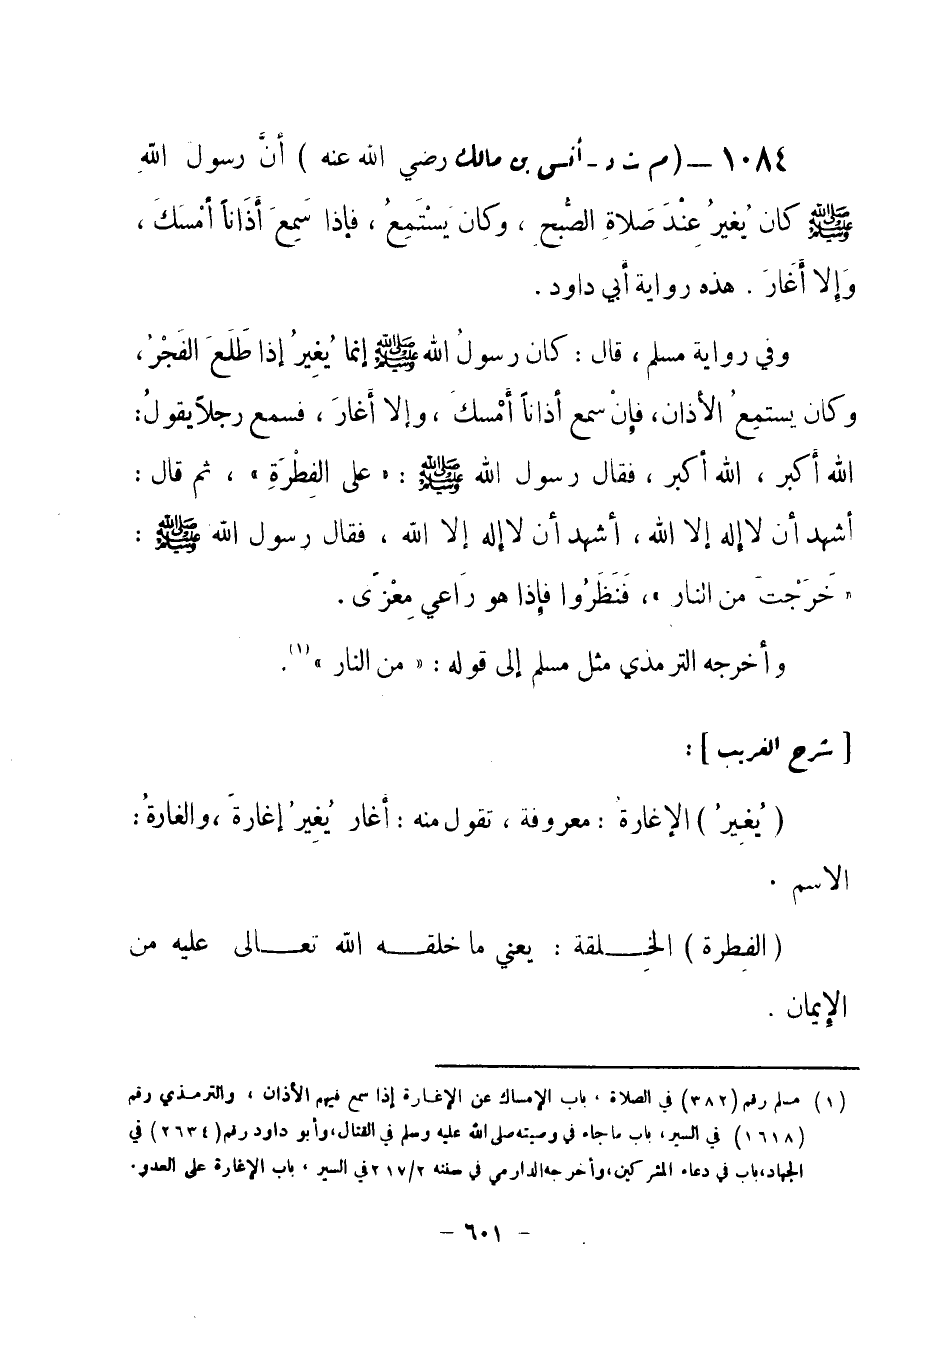 ١٠٨٤ – (م ت د - أنس بن مالك رضي الله عنه) أنَّ رسول اللهِ
ﷺ كان يُغيرُ عِنْدَ صَلاةِ الصُّبحِ ، وكان يَسْتَمِعُ ، فإذا سَمِعَ أَذَاناً أمْسَكَ ،
وَإلا أَغَارَ . هذه رواية أبي داود .
وفي رواية مسلم ، قال : كان رسولُ الله ﷺ إنما يُغِيرُ إذا طَلَعَ الفَجْرُ ،
وكان يستمِعُ الأذان، فإنْ سمع أذاناً أمْسكَ ، وإلا أغارَ ، فسمع رجلاً يقولُ:
الله أكبر ، الله أكبر ، فقال رسول الله ﷺ : « على الفِطْرَةِ » ، ثم قال :
أشهد أن لاإله إلا الله، أشهد أن لاإله إلا الله ، فقال رسول الله ﷺ :
« خَرَجْتَ من النار »، فَنَظَرُوا فإذا هو رَاعي مِعْزًى .
وأخرجه الترمذي مثل مسلم إلى قوله : « من النار »(١).
[ شرح الغريب ] :
( يُغيرُ ) الإغارةُ : معروفة ، تقول منه : أغار يُغيرُ إغارةً ، والغارةُ :
الاسم .
( الفِطرة ) الخِـلقة : يعني ما خلقـه الله تعـالى عليه من
الإيمان .
(١) مسلم رقم (٣٨٢) في الصلاة ، باب الإمساك عن الإغارة إذا سمع فيهم الأذان ، والترمذي رقم
(١٦١٨) في السير، باب ماجاء في وصيته صلى الله عليه وسلم في القتال، وأبو داود رقم (٢٦٣٤) في
الجهاد، باب في دعاء المشركين، وأخرجه الدارمي في سننه ٢١٧/٢ في السير ، باب الإغارة على العدو.
- ٦٠١ -